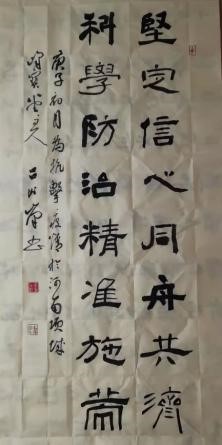 堅定信心同舟共濟
科學防治精准施策
庚子初月為抗擊疫情於河南項城
寶堂主人